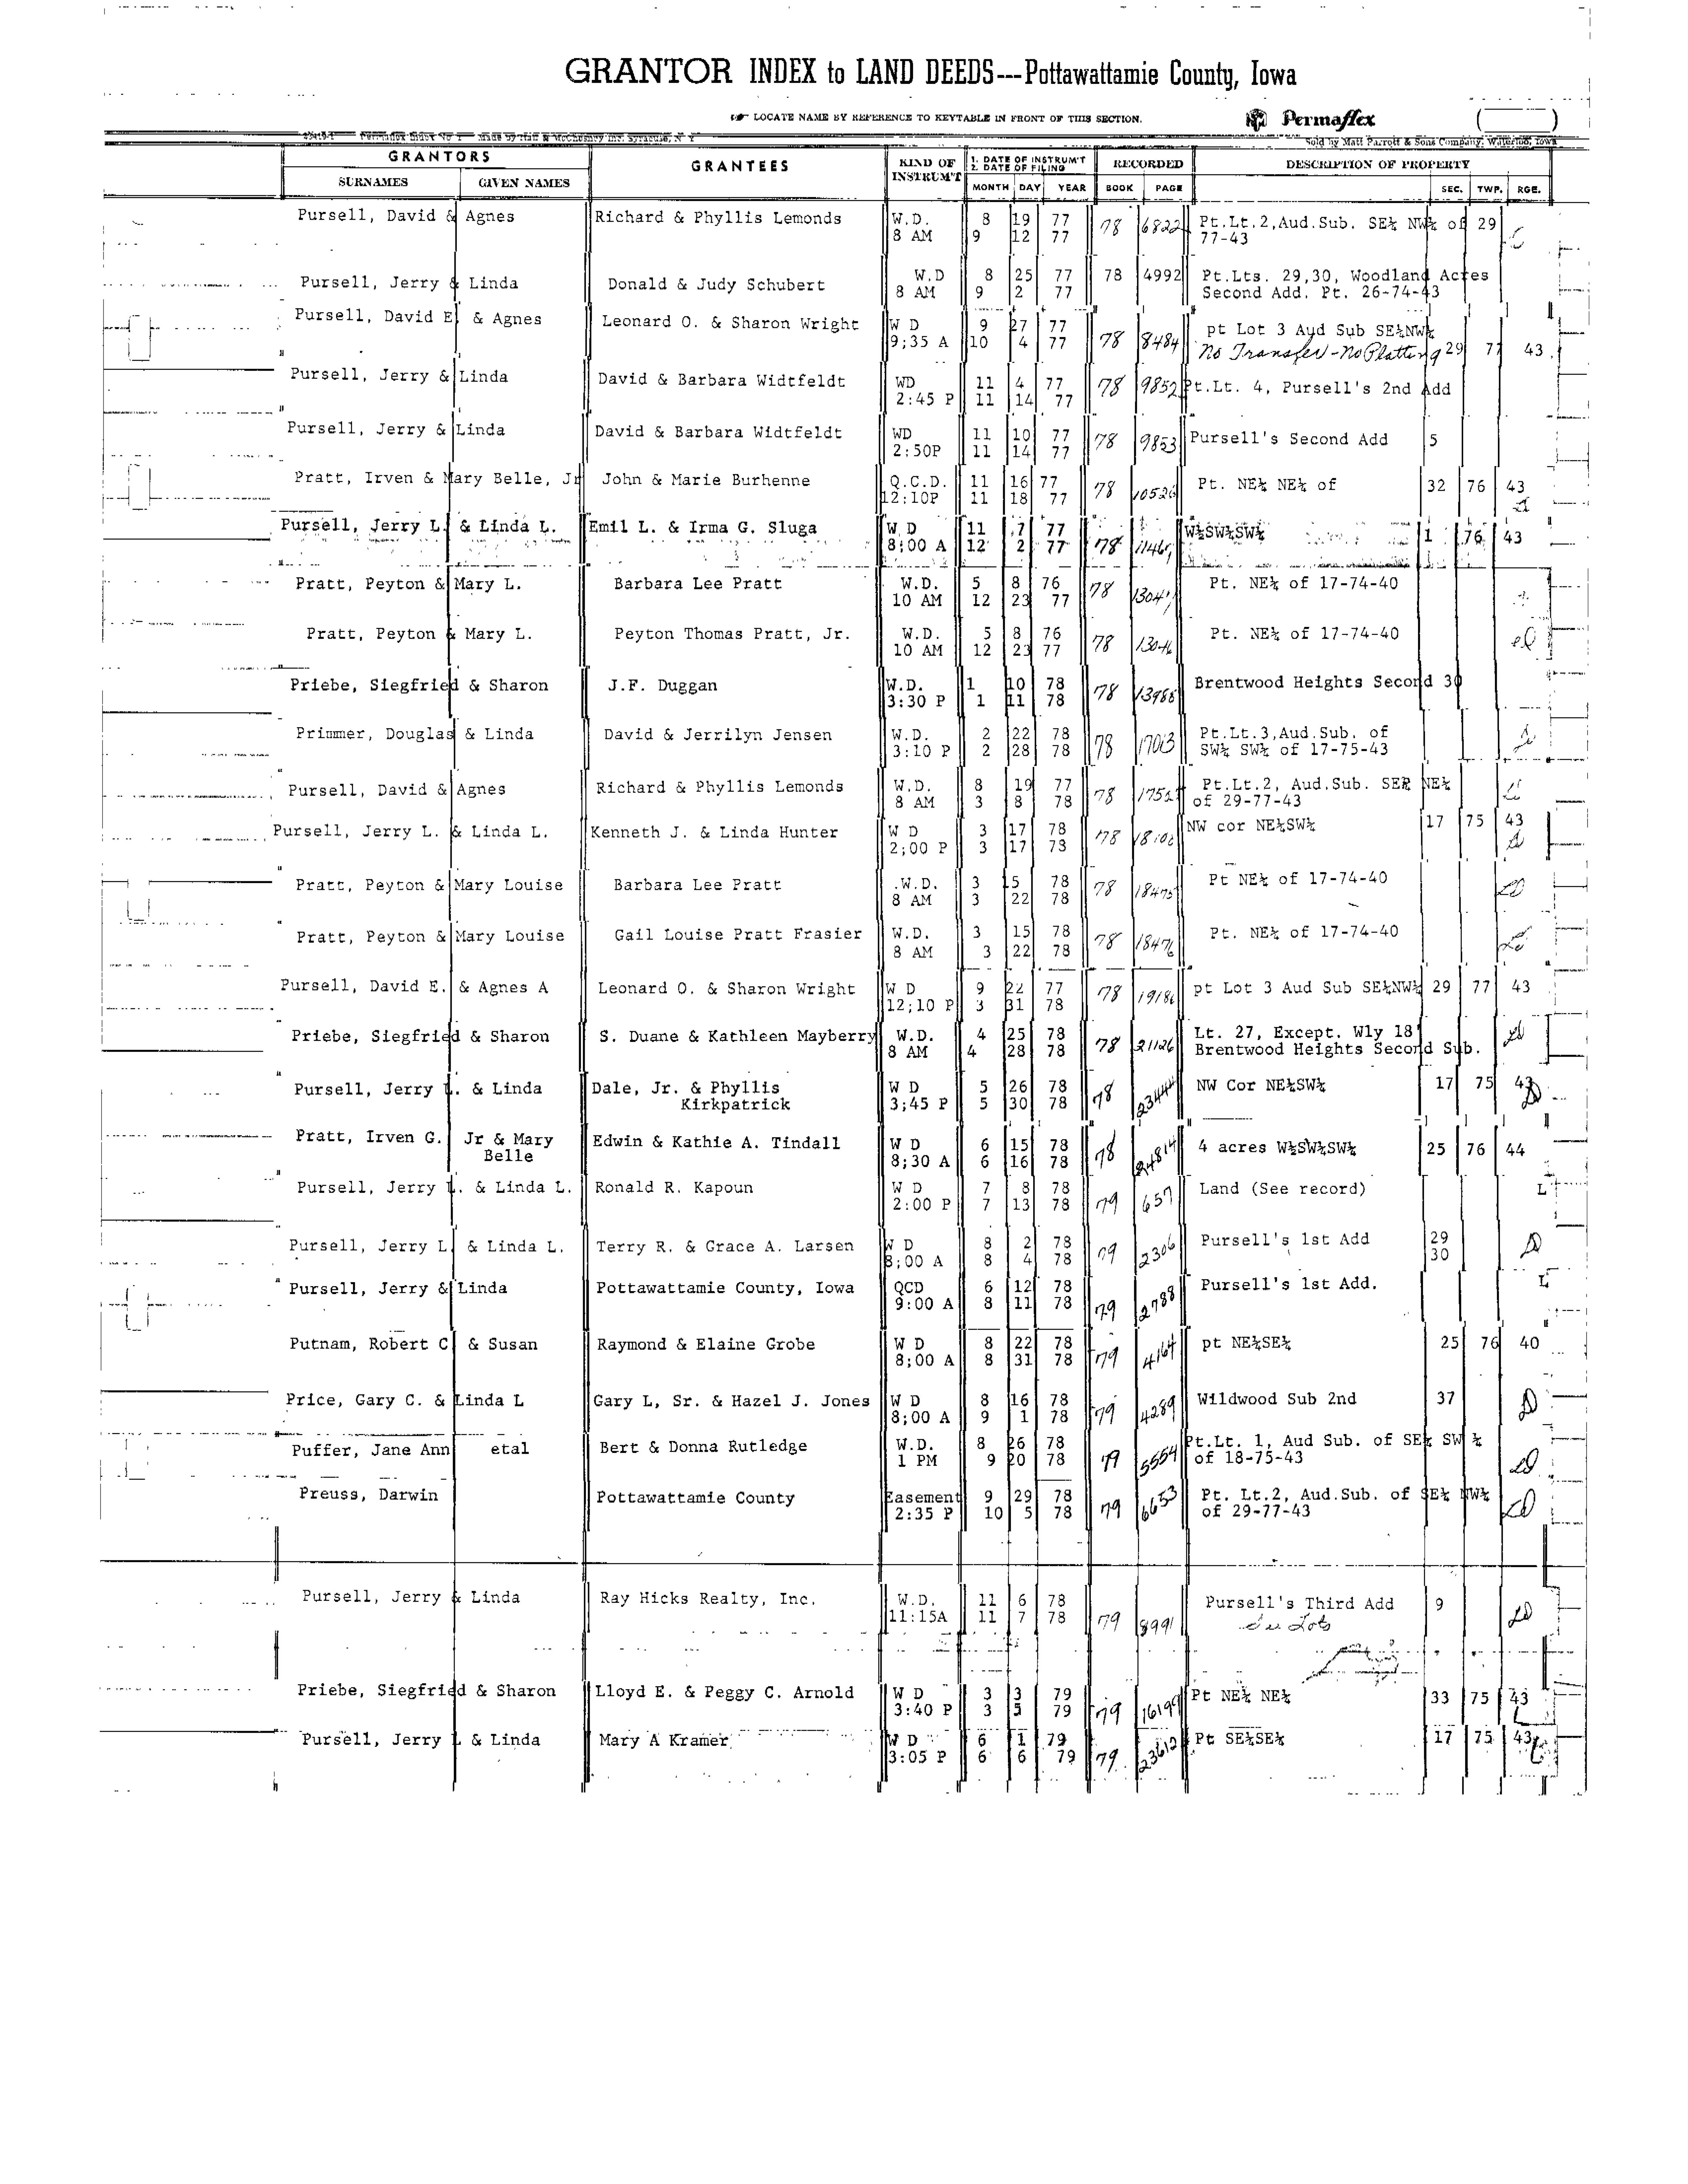 GRANTOR INDEX to LAND DEEDS---Pottawattamie County, Iowa
LOCATE NAME BY REFERENCE TO KEYTABLE IN FRONT OF THIS SECTION.
Permaflex
Sold by Matt Parrott & Sons Company, Waterloo, Iowa
GRANTORS GRANTEES KIND OF INSTRUM'T 1. DATE OF INSTRUM'T 2. DATE OF FILING RECORDED DESCRIPTION OF PROPERTY
SURNAMES GIVEN NAMES MONTH DAY YEAR BOOK PAGE SEC. TWP. RGE.
Pursell, David & Agnes Richard & Phyllis Lemonds W.D. 8 19 77 78 6822 Pt.Lt.2,Aud.Sub. SE¼ NW¼ of 29
8 AM 9 12 77 77-43
Pursell, Jerry & Linda Donald & Judy Schubert W.D 8 25 77 78 4992 Pt.Lts. 29,30, Woodland Acres
8 AM 9 2 77 Second Add. Pt. 26-74-43
Pursell, David E & Agnes Leonard O. & Sharon Wright W D 9 27 77 78 8484 pt Lot 3 Aud Sub SE¼NW¼
9;35 A 10 4 77 No Transfer-No Platting 29 77 43
Pursell, Jerry & Linda David & Barbara Widtfeldt WD 11 4 77 78 9852 Pt.Lt. 4, Pursell's 2nd Add
2:45 P 11 14 77
Pursell, Jerry & Linda David & Barbara Widtfeldt WD 11 10 77 78 9853 Pursell's Second Add 5
2:50P 11 14 77
Pratt, Irven & Mary Belle, Jr John & Marie Burhenne Q.C.D. 11 16 77 78 10526 Pt. NE¼ NE¼ of 32 76 43
12:10P 11 18 77
Pursell, Jerry L. & Linda L. Emil L. & Irma G. Sluga W D 11 7 77 78 W½SW¼SW¼ 1 76 43
8;00 A 12 2 77
Pratt, Peyton & Mary L. Barbara Lee Pratt W.D. 5 8 76 78 Pt. NE¼ of 17-74-40
10 AM 12 23 77
Pratt, Peyton & Mary L. Peyton Thomas Pratt, Jr. W.D. 5 8 76 78 13046 Pt. NE¼ of 17-74-40
10 AM 12 23 77
Priebe, Siegfried & Sharon J.F. Duggan W.D. 1 10 78 78 13988 Brentwood Heights Second 30
3:30 P 1 11 78
Primmer, Douglas & Linda David & Jerrilyn Jensen W.D. 2 22 78 78 17013 Pt.Lt.3,Aud.Sub. of
3:10 P 2 28 78 SW¼ SW¼ of 17-75-43
Pursell, David & Agnes Richard & Phyllis Lemonds W.D. 8 19 77 78 Pt.Lt.2, Aud.Sub. SER NE¼
8 AM 3 8 78 of 29-77-43
Pursell, Jerry L. & Linda L. Kenneth J. & Linda Hunter W D 3 17 78 78 NW cor NE¼SW¼ 17 75 43
2;00 P 3 17 78
Pratt, Peyton & Mary Louise Barbara Lee Pratt .W.D. 3 15 78 78 18475 Pt NE¼ of 17-74-40
8 AM 3 22 78
Pratt, Peyton & Mary Louise Gail Louise Pratt Frasier W.D. 3 15 78 78 18476 Pt. NE¼ of 17-74-40
8 AM 3 22 78
Pursell, David E. & Agnes A Leonard O. & Sharon Wright W D 9 22 77 78 19186 pt Lot 3 Aud Sub SE¼NW¼ 29 77 43
12;10 P 3 31 78
Priebe, Siegfried & Sharon S. Duane & Kathleen Mayberry W.D. 4 25 78 78 21126 Lt. 27, Except. Wly 18'
8 AM 4 28 78 Brentwood Heights Second Sub.
Pursell, Jerry L. & Linda Dale, Jr. & Phyllis W D 5 26 78 78 NW Cor NE¼SW¼ 17 75 43
Kirkpatrick 3;45 P 5 30 78
Pratt, Irven G. Jr & Mary Edwin & Kathie A. Tindall W D 6 15 78 78 24814 4 acres W½SW¼SW¼ 25 76 44
Belle 8;30 A 6 16 78
Pursell, Jerry L. & Linda L. Ronald R. Kapoun W D 7 8 78 79 657 Land (See record)
2:00 P 7 13 78
Pursell, Jerry L & Linda L. Terry R. & Grace A. Larsen W D 8 2 78 79 2306 Pursell's 1st Add 29
8;00 A 8 4 78 30
Pursell, Jerry & Linda Pottawattamie County, Iowa QCD 6 12 78 79 2788 Pursell's 1st Add.
9:00 A 8 11 78
Putnam, Robert C & Susan Raymond & Elaine Grobe W D 8 22 78 79 4164 pt NE¼SE¼ 25 76 40
8;00 A 8 31 78
Price, Gary C. & Linda L Gary L, Sr. & Hazel J. Jones W D 8 16 78 79 4289 Wildwood Sub 2nd 37
8;00 A 9 1 78
Puffer, Jane Ann etal Bert & Donna Rutledge W.D. 8 26 78 79 5554 Pt.Lt. 1, Aud Sub. of SE¼ SW ¼
1 PM 9 20 78 of 18-75-43
Preuss, Darwin Pottawattamie County Easement 9 29 78 79 6653 Pt. Lt.2, Aud.Sub. of SE¼ NW¼
2:35 P 10 5 78 of 29-77-43
Pursell, Jerry & Linda Ray Hicks Realty, Inc. W.D. 11 6 78 79 8991 Pursell's Third Add 9
11:15A 11 7 78
Priebe, Siegfried & Sharon Lloyd E. & Peggy C. Arnold W D 3 3 79 79 16199 Pt NE¼ NE¼ 33 75 43
3:40 P 3 5 79
Pursell, Jerry L & Linda Mary A Kramer W D 6 1 79 79 23612 Pt SE¼SE¼ 17 75 43
3:05 P 6 6 79